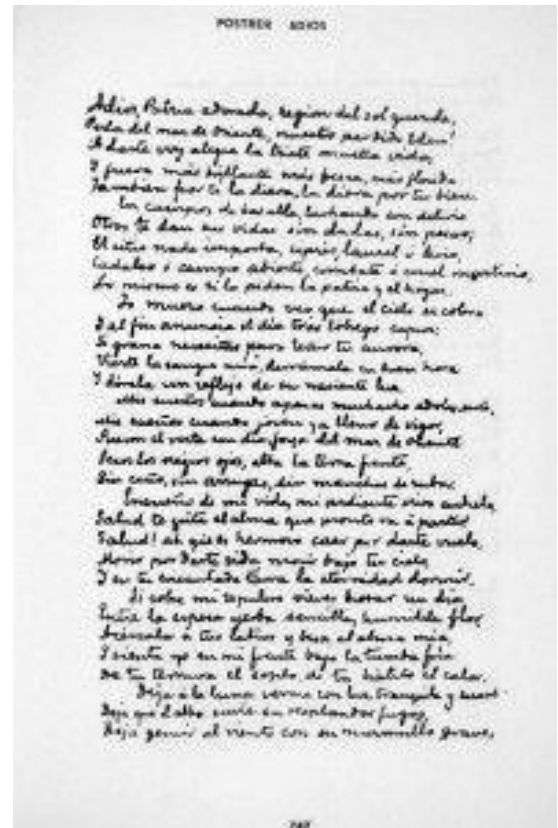 POSTRER ADIOS
Adios, Patria adorada, region del sol querida,
Perla del mar de Oriente, nuestro perdido Eden!
A darte voy alegre la triste mustia vida,
Y fuera más brillante más fresca, más florida
Tambien por tí la diera, la diera por tu bien.
En campos de batalla, luchando con delirio
Otros te dan sus vidas sin dudas, sin pesar;
El sitio nada importa, ciprés, laurel ó lirio,
Cadalso ó campo abierto, combate ó cruel martirio,
Lo mismo es si lo piden la patria y el hogar.
Yo muero cuando veo que el cielo se colora
Y al fin anuncia el día tras lóbrego capuz;
Si grana necesitas para teñir tu aurora,
Vierte la sangre mía, derrámala en buen hora
Y dórela un reflejo de su naciente luz
Mis sueños cuando apenas muchacho adolescente,
Mis sueños cuando joven ya lleno de vigor,
Fueron el verte un día, joya del mar de Oriente
Secos los negros ojos, alta la tersa frente,
Sin ceño, sin arrugas, sin manchas de rubor.
Ensueño de mi vida, mi ardiente vivo anhelo,
Salud te grita el alma que pronto va á partir!
Salud! ah que es hermoso caer por darte vuelo,
Morir por darte vida, morir bajo tu cielo,
Y en tu encantada tierra la eternidad dormir.
Si sobre mi sepulcro vieres brotar un dia
Entre la espesa yerba sencilla, humilde flor,
Acércala á tus labios y besa al alma mía,
Y sienta yo en mi frente bajo la tumba fría
De tu ternura el soplo, de tu hálito el calor.
Deja á la luna verme con luz tranquila y suave;
Deja que el alba envíe su resplandor fugaz,
Deja gemir al viento con su murmullo grave,